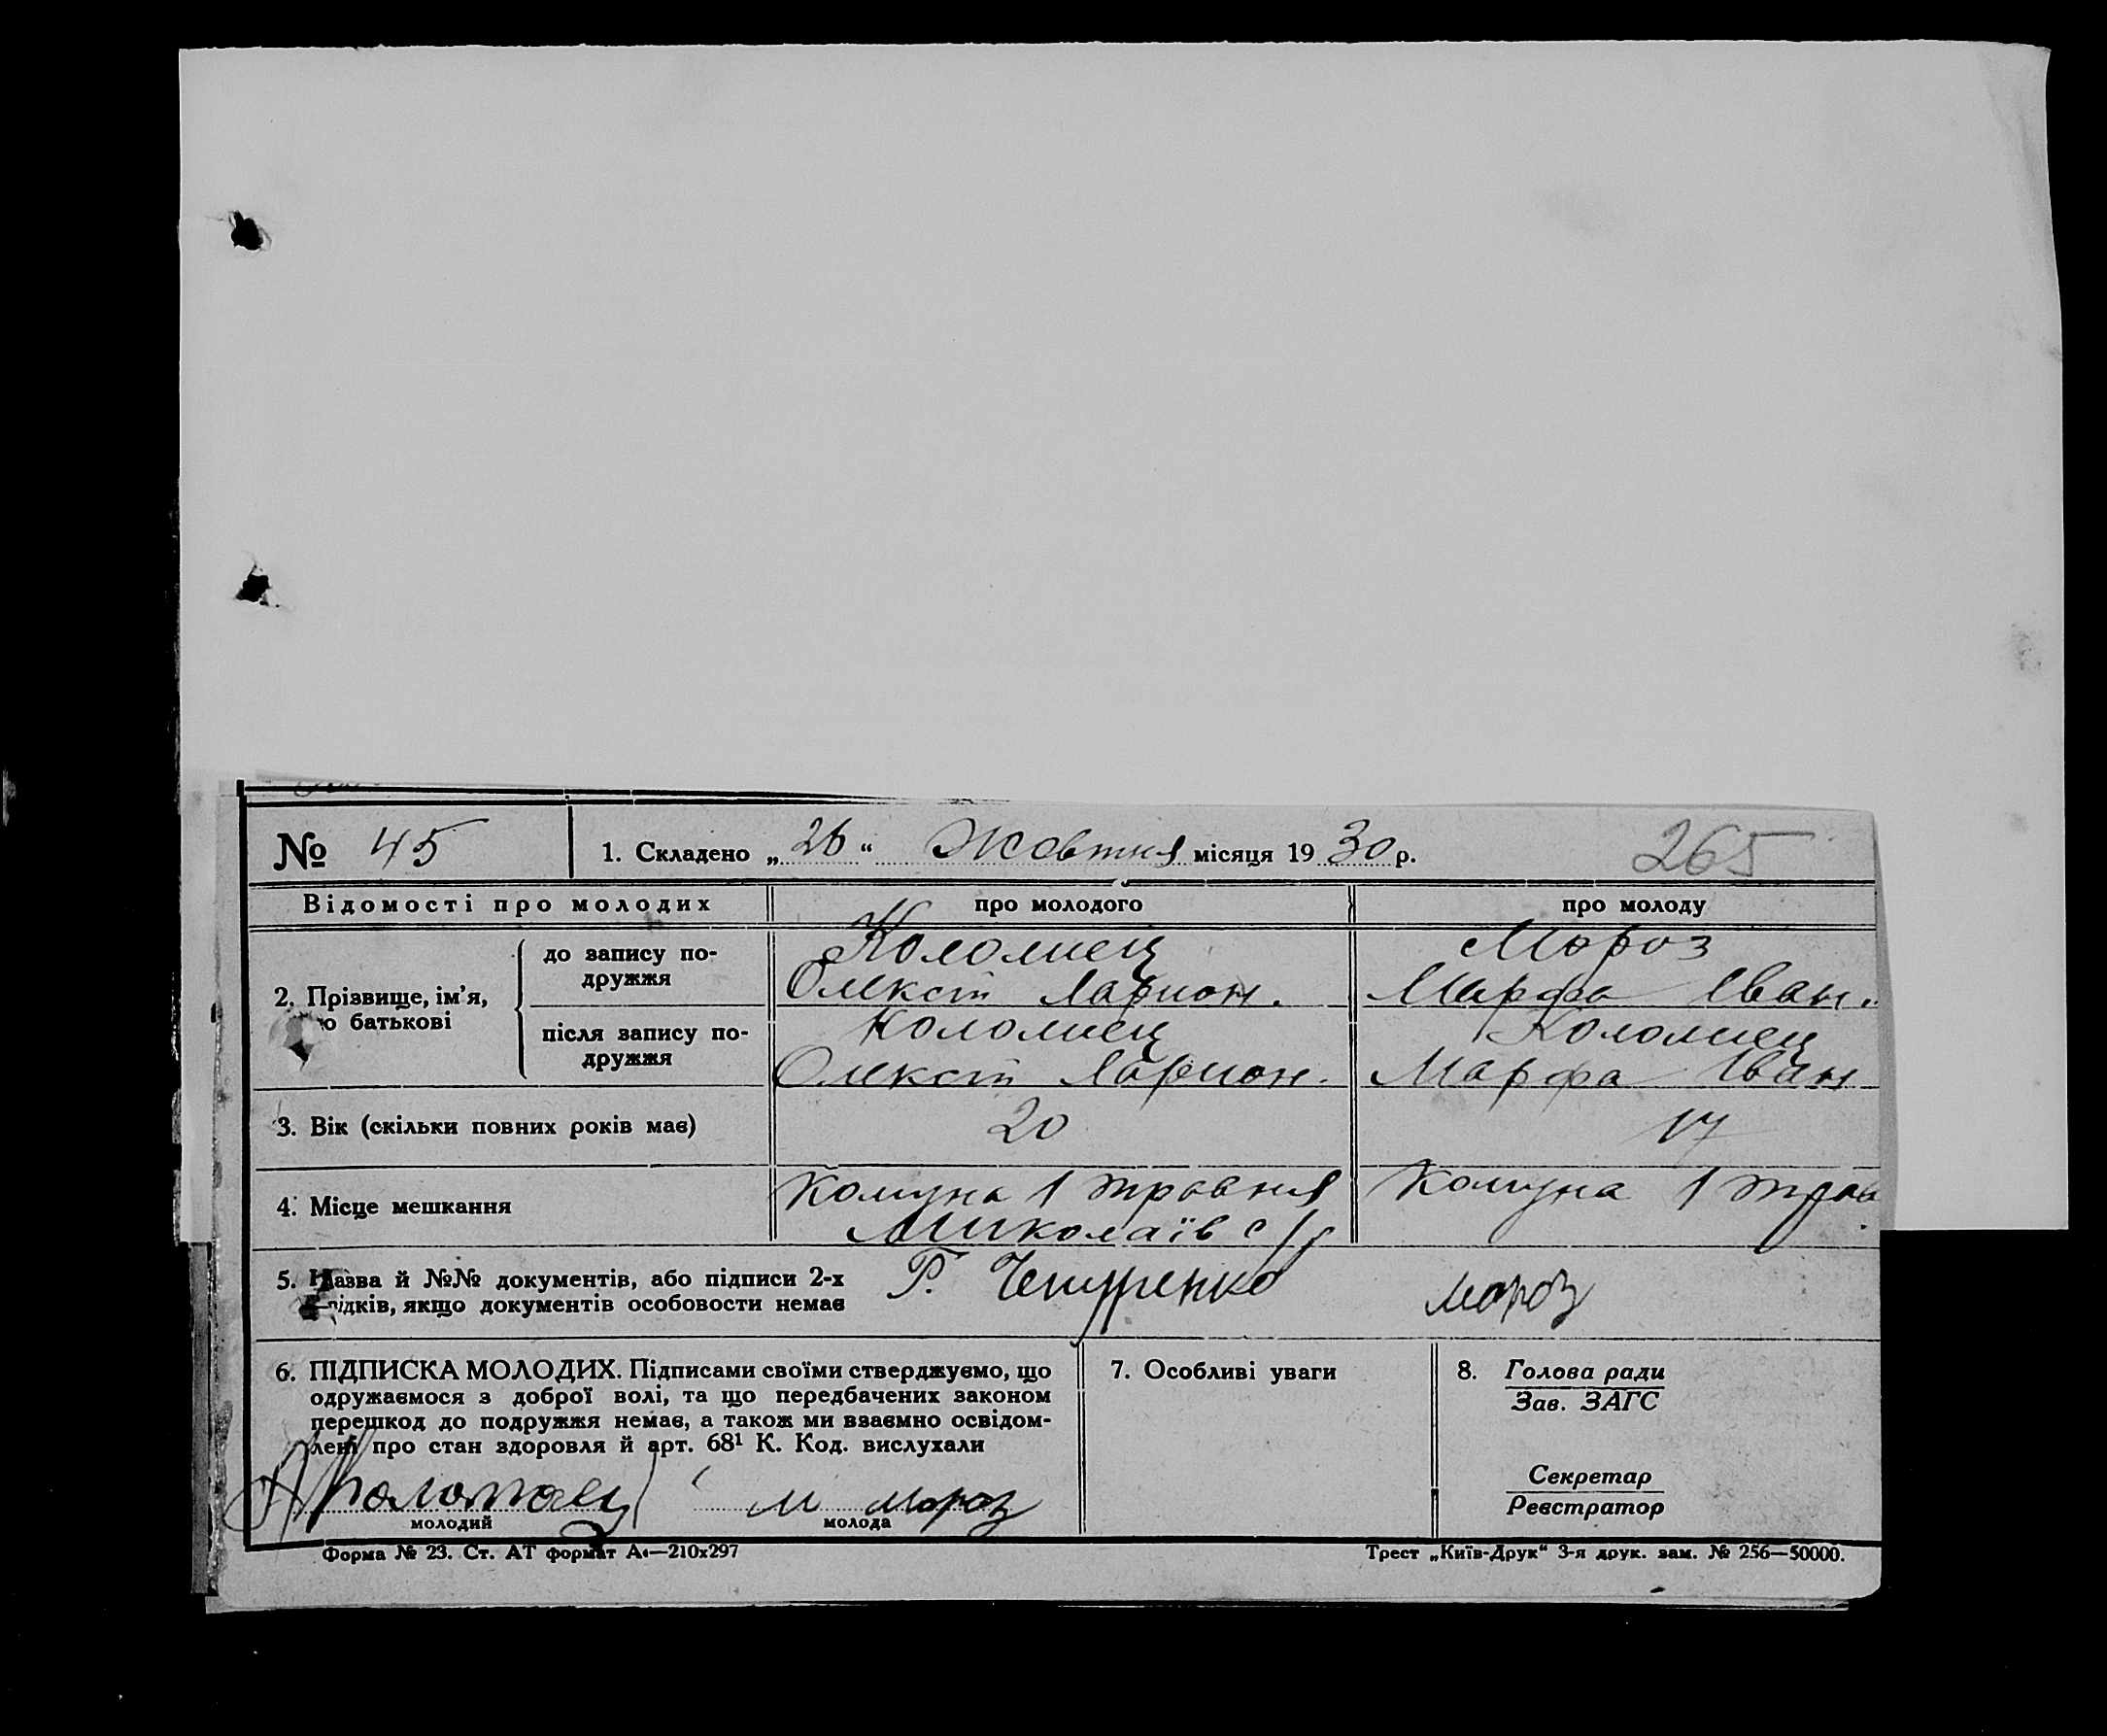 № 45
1. Складено „ 26 “ Жовтня місяця 19 30 р.
265
Відомості про молодих
про молодого
про молоду
2. Прізвище, ім’я,
по батькові
до запису по-
дружжя
Коломиец
Олексій Ларион.
Мороз
Марфа Іван.
після запису по-
дружжя
Коломиец
Олексій Ларион.
Коломиец
Марфа Іван
3. Вік (скільки повних років має)
20
17
4. Місце мешкання
Комуна 1 травня
Миколаїв с/р
Комуна 1 трав
5. Назва й №№ документів, або підписи 2-х
свідків, якщо документів особовости немає
Г. Чепуренко
Мороз
6. ПІДПИСКА МОЛОДИХ. Підписами своїми стверджуємо, що
одружаємося з доброї волі, та що передбачених законом
перешкод до подружжя немає, а також ми взаємно освідом-
лені про стан здоровля й арт. 68¹ К. Код. вислухали
А Коломаец
молодий
М Мороз
молода
7. Особливі уваги
8. Голова ради
Зав. ЗАГС
Секретар
Реєстратор
Форма № 23. Ст. АТ формат А4—210х297
Трест „Київ-Друк“ 3-я друк. зам. № 256—50000.